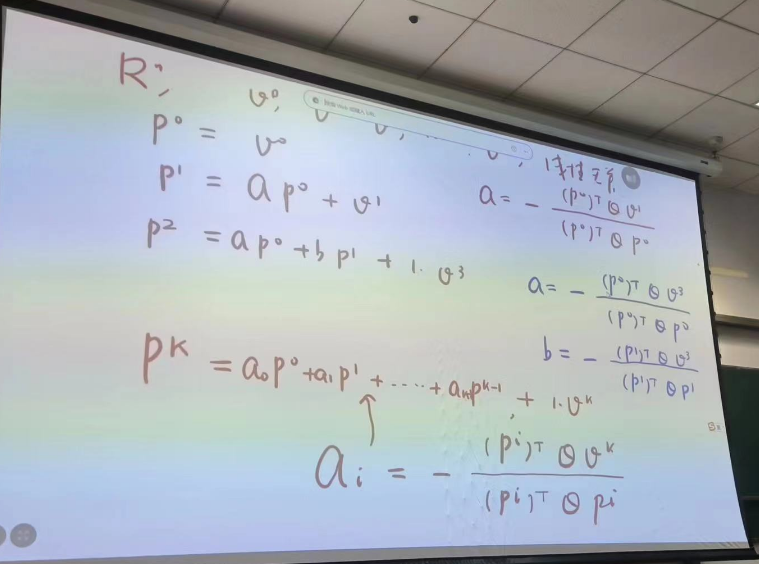 Rⁿ, v⁰, v v, ... v, 线性无关
p⁰ = v⁰
p¹ = a p⁰ + v¹
a = - (p⁰)ᵀ Θ v¹ / (p⁰)ᵀ Θ p⁰
p² = a p⁰ + b p¹ + 1. v³
a = - (p⁰)ᵀ Θ v³ / (p⁰)ᵀ Θ p⁰
b = - (p¹)ᵀ Θ v³ / (p¹)ᵀ Θ p¹
pᴷ = a₀p⁰ + a₁p¹ + .... + aₖpᵏ⁻¹ + 1. vᵏ
aᵢ = - (pⁱ)ᵀ Θ vᴷ / (pⁱ)ᵀ Θ pⁱ